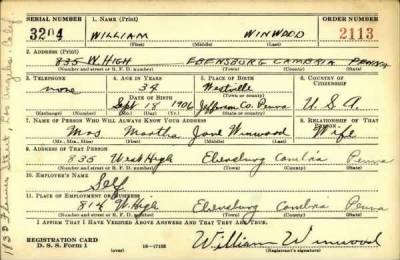 SERIAL NUMBER 1. NAME (Print) ORDER NUMBER
3204 WILLIAM WINWOOD 2113
(First) (Middle) (Last)
2. ADDRESS (Print)
835 W. HIGH EBENSBURG CAMBRIA PENNA
(Number and street or R. F. D. number) (Town) (County) (State)
3. TELEPHONE 4. AGE IN YEARS 5. PLACE OF BIRTH 6. COUNTRY OF CITIZENSHIP
none 34 Westville
DATE OF BIRTH (Town or county)
Sept 18 1906 Jefferson Co. Penna U.S.A.
(Exchange) (Number) (Mo.) (Day) (Yr.) (State or country)
7. NAME OF PERSON WHO WILL ALWAYS KNOW YOUR ADDRESS 8. RELATIONSHIP OF THAT PERSON
Mrs. Martha Jane Winwood Wife
(Mr., Mrs., Miss) (First) (Middle) (Last)
9. ADDRESS OF THAT PERSON
835 West High Ebensburg Cambria Penna
(Number and street or R. F. D. number) (Town) (County) (State)
10. EMPLOYER'S NAME
Self
11. PLACE OF EMPLOYMENT OR BUSINESS
814 W. High Ebensburg Cambria Penna
(Number and street or R. F. D. number) (Town) (County) (State)
I AFFIRM THAT I HAVE VERIFIED ABOVE ANSWERS AND THAT THEY ARE TRUE.
REGISTRATION CARD
D. S. S. Form 1 (over) 16—17105 William Winwood
(Registrant's signature)
Street, Los Angeles Calif